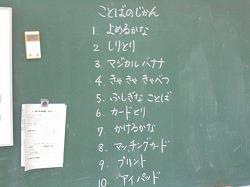 ことばのじかん
1 よめるかな
2 しりとり
3 マジカルバナナ
4 きゃきゃきゃべつ
5 ふしぎなことば
6 カードとり
7 かけるかな
8 マッチングカード
9 プリント
10 アイパッド